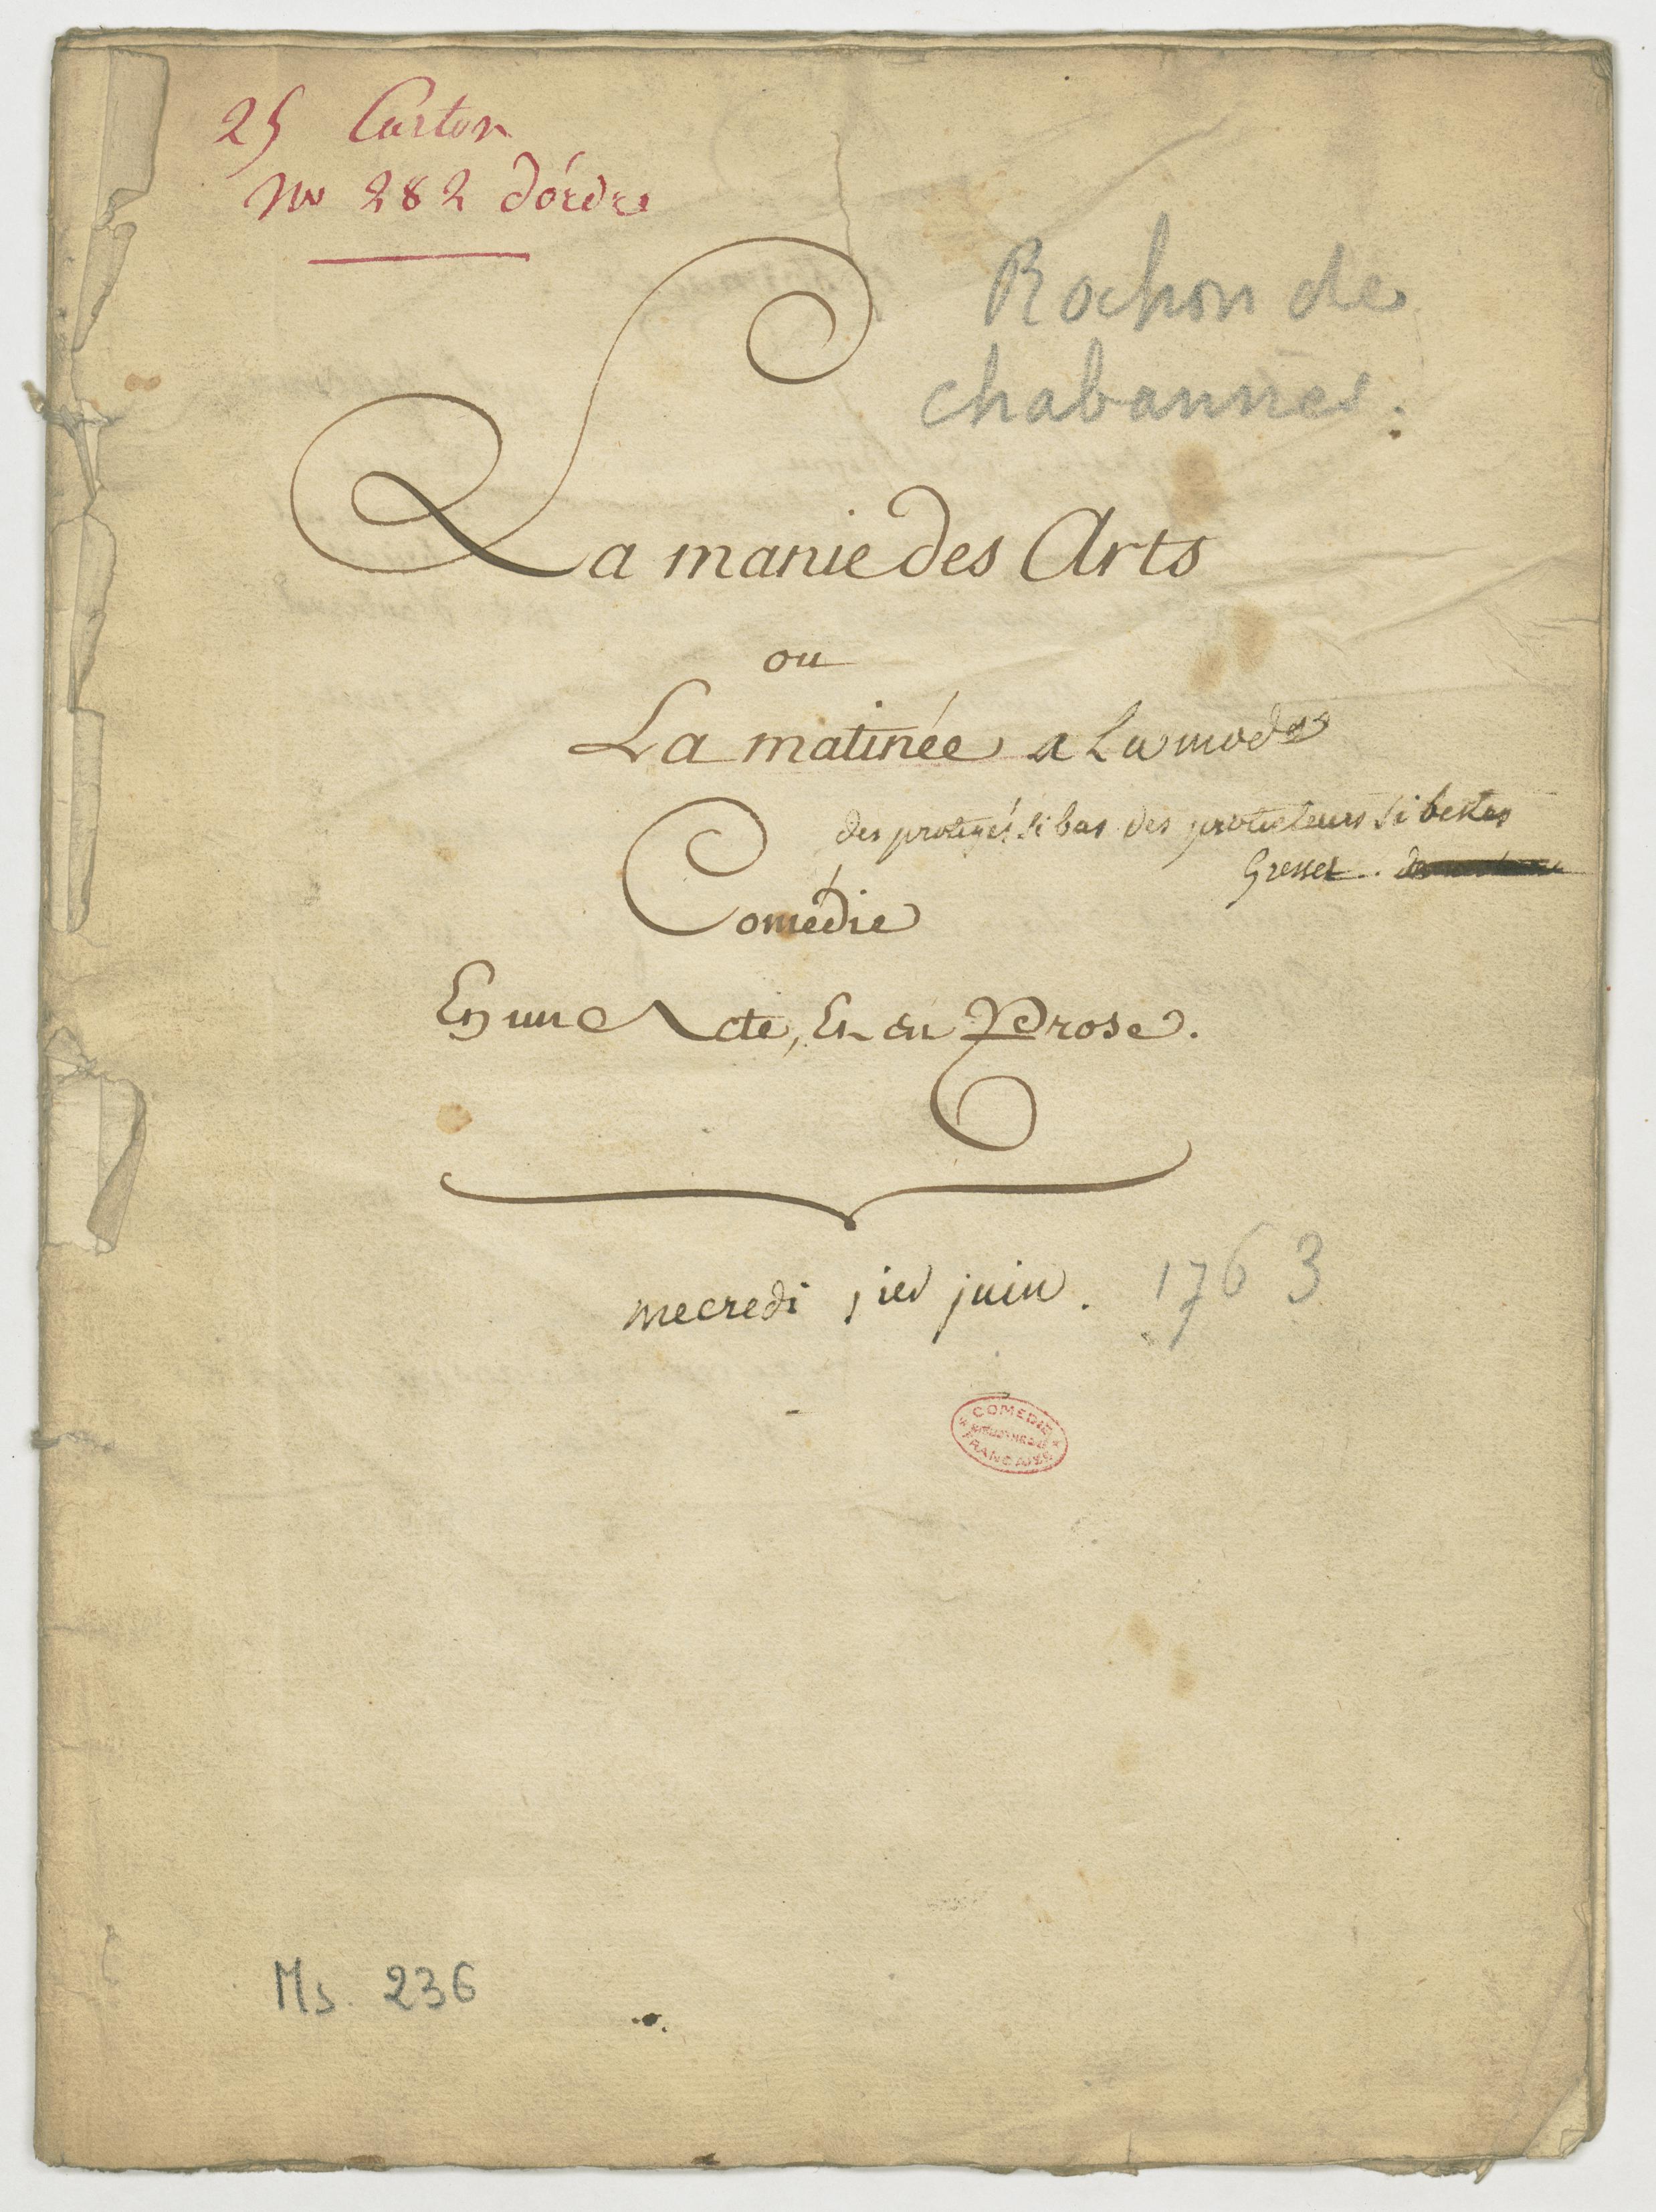 25 Carton
No 282 d'órdre
Rochon de
chabannes.
La manie des Arts
ou
La matinée a La mode
des protegés si bas des protecteurs si bestes
Gresset.
Comédie
En un Acte, Et en Prose.
mecredi 1ier juin. 1763
COMEDIE
BIBLIOTHEQUE
FRANCAISE
Ms. 236